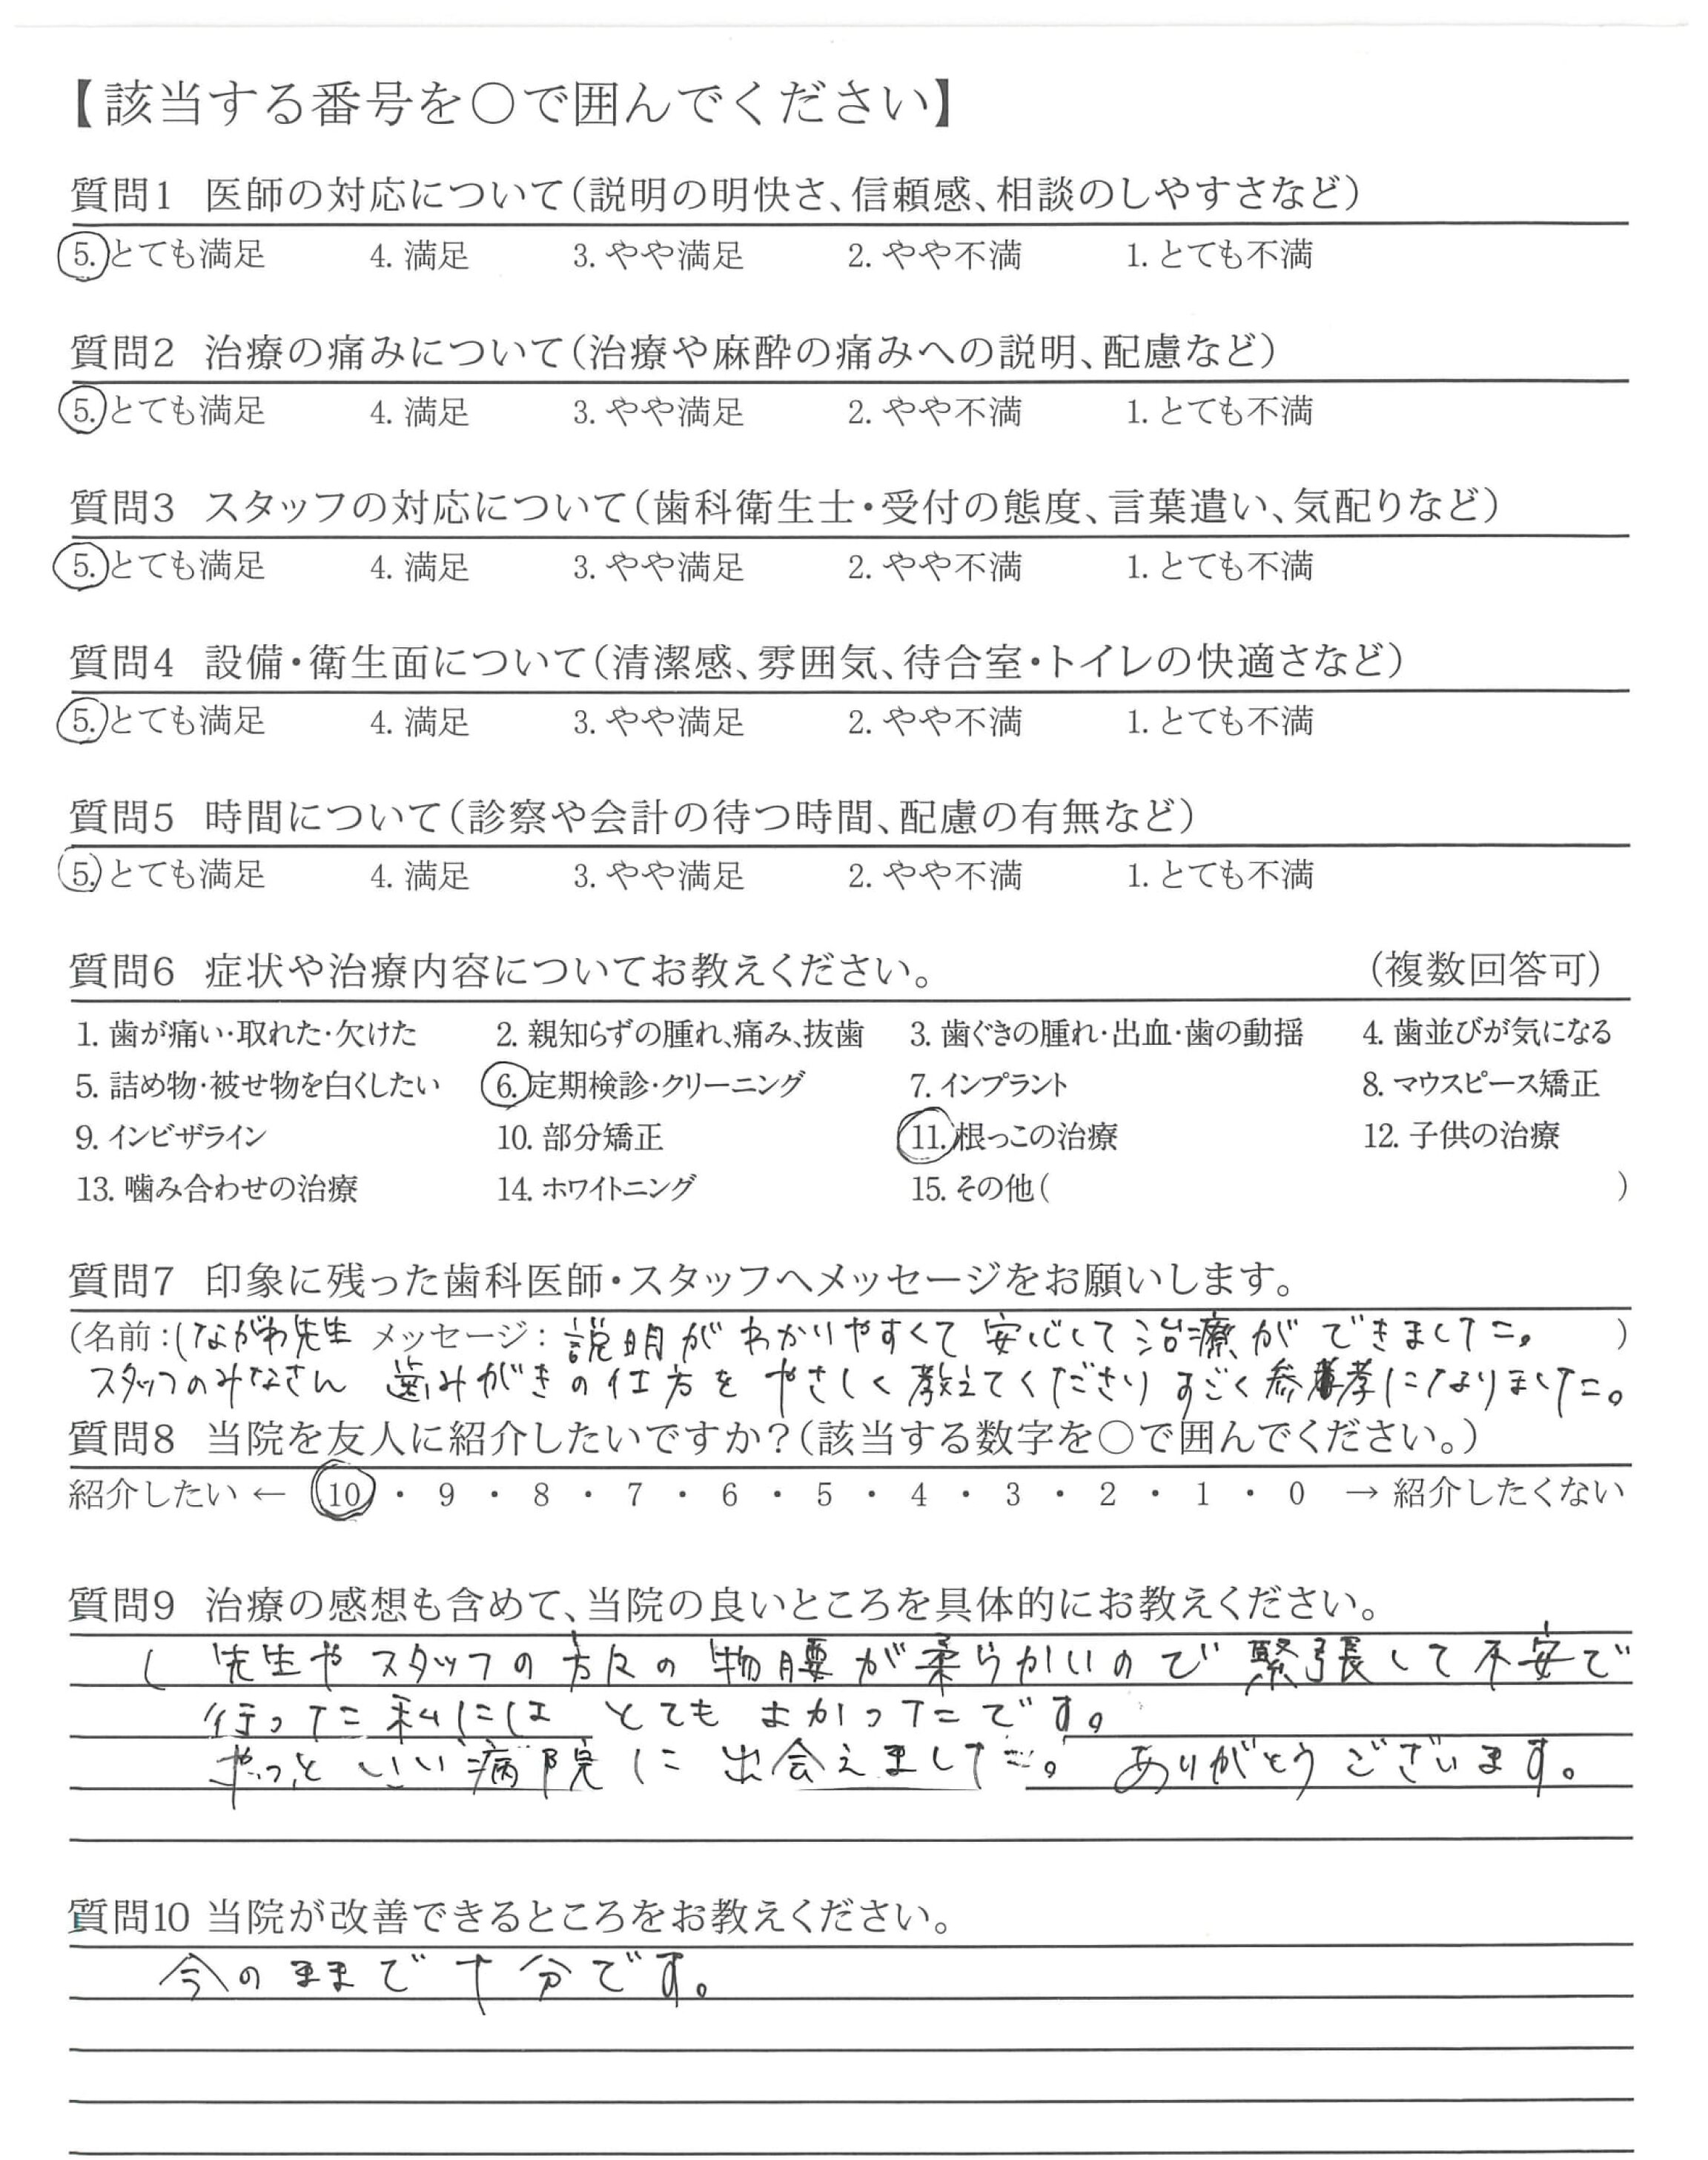 【該当する番号を○で囲んでください】
質問1 医師の対応について(説明の明快さ、信頼感、相談のしやすさなど)
5. とても満足 4. 満足 3. やや満足 2. やや不満 1. とても不満
質問2 治療の痛みについて(治療や麻酔の痛みへの説明、配慮など)
5. とても満足 4. 満足 3. やや満足 2. やや不満 1. とても不満
質問3 スタッフの対応について(歯科衛生士・受付の態度、言葉遣い、気配りなど)
5. とても満足 4. 満足 3. やや満足 2. やや不満 1. とても不満
質問4 設備・衛生面について(清潔感、雰囲気、待合室・トイレの快適さなど)
5. とても満足 4. 満足 3. やや満足 2. やや不満 1. とても不満
質問5 時間について(診察や会計の待つ時間、配慮の有無など)
5. とても満足 4. 満足 3. やや満足 2. やや不満 1. とても不満
質問6 症状や治療内容についてお教えください。 (複数回答可)
1. 歯が痛い・取れた・欠けた 2. 親知らずの腫れ、痛み、抜歯 3. 歯ぐきの腫れ・出血・歯の動揺 4. 歯並びが気になる
5. 詰め物・被せ物を白くしたい 6. 定期検診・クリーニング 7. インプラント 8. マウスピース矯正
9. インビザライン 10. 部分矯正 11. 根っこの治療 12. 子供の治療
13. 噛み合わせの治療 14. ホワイトニング 15. その他( )
質問7 印象に残った歯科医師・スタッフへメッセージをお願いします。
(名前:しながわ先生 メッセージ: 説明がわかりやすくて安心して治療ができました。 )
スタッフのみなさん 歯みがきの仕方をやさしく教えてくださりすごく参考になりました。
質問8 当院を友人に紹介したいですか?(該当する数字を○で囲んでください。)
紹介したい ← 10 ・ 9 ・ 8 ・ 7 ・ 6 ・ 5 ・ 4 ・ 3 ・ 2 ・ 1 ・ 0 → 紹介したくない
質問9 治療の感想も含めて、当院の良いところを具体的にお教えください。
( 先生やスタッフの方々の物腰が柔らかいので緊張して不安で
行った私にはとてもよかったです。
やっといい病院に出会えました。 ありがとうございます。
質問10 当院が改善できるところをお教えください。
今のままで十分です。